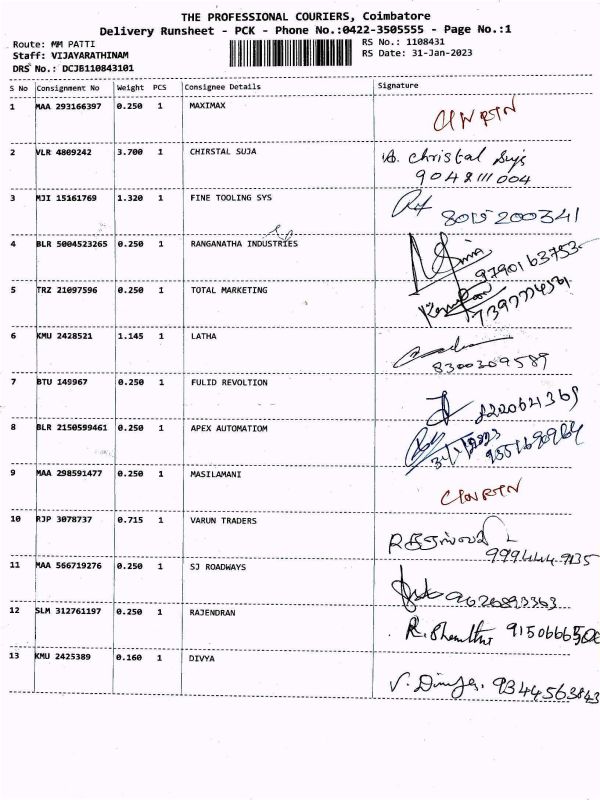 THE PROFESSIONAL COURIERS, Coimbatore
Delivery Runsheet - PCK - Phone No.:0422-3505555 - Page No.:1
Route: MM PATTI
RS No.: 1108431
Staff: VIJAYARATHINAM
RS Date: 31-Jan-2023
DRS No.: DCJB110843101
S No Consignment No Weight PCS Consignee Details Signature
1 MAA 293166397 0.250 1 MAXIMAX
2 VLR 4809242 3.700 1 CHIRSTAL SUJA
christal
9048111004
3 MJI 15161769 1.320 1 FINE TOOLING SYS
8015200341
4 BLR 5004523265 0.250 1 RANGANATHA INDUSTRIES
9790163753
5 TRZ 21097596 0.250 1 TOTAL MARKETING
6 KMU 2428521 1.145 1 LATHA
8300309589
7 BTU 149967 0.250 1 FULID REVOLTION
8 BLR 2150599461 0.250 1 APEX AUTOMATIOM
9 MAA 298591477 0.250 1 MASILAMANI
10 RJP 3078737 0.715 1 VARUN TRADERS
11 MAA 566719276 0.250 1 SJ ROADWAYS
9626893363
12 SLM 312761197 0.250 1 RAJENDRAN
13 KMU 2425389 0.160 1 DIVYA
9344563843